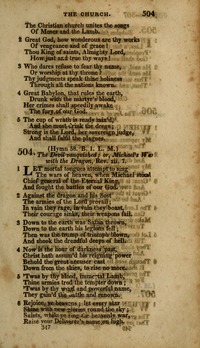 THE CHURCH. 504
The Christian church unites the songs
Of Moses and the Lamb.
2 Great God, how wonderous are thy works
Of vengeance and of grace!
Thou King of saints, Almighty Lord,
How just and true thy ways!
3 Who dares refuse to fear thy name,
Or worship at thy throne!
Thy judgments speak thine holiness
Through all the nations known.
4 Great Babylon, that rules the earth,
Drunk with the martyr's blood,
Her crimes shall speedily awake
The fury of our God.
5 The cup of wrath is ready mix'd,
And she must drink the dregs:
Strong is the Lord, her sovereign judge,
And shall fulfil the plagues.
504. (Hymn 58. B. 1. L. M.)
The Devil vanquished; or, Michael's War
with the Dragon, Rev. xii. 7.
1 LET mortal tongues attempt to sing
The wars of heaven, when Michael stood
Chief general of the Eternal King,
And fought the battles of our God.
2 Against the dragon and his host
The armies of the Lord prevail;
In vain they rage, in vain they boast,
Their courage sinks, their weapons fail.
3 Down to the earth was Satan thrown,
Down to the earth his legions fell;
Then was the trump of triumph blown,
And shook the dreadful deeps of hell.
4 Now is the hour of darkness past,
Christ hath assum'd his reigning power
Behold the great accuser cast
Down from the skies, to rise no more.
5 'Twas by thy blood, immortal Lamb,
Thine armies trod the tempter down;
'Twas by thy word and powerful name,
They gain'd the battle and renown.
6 Rejoice, ye heavens; let every star
Shine with new glories round the sky;
Saints, while ye sing the heavenly war,
Raise your Deliverer's name on high.
347